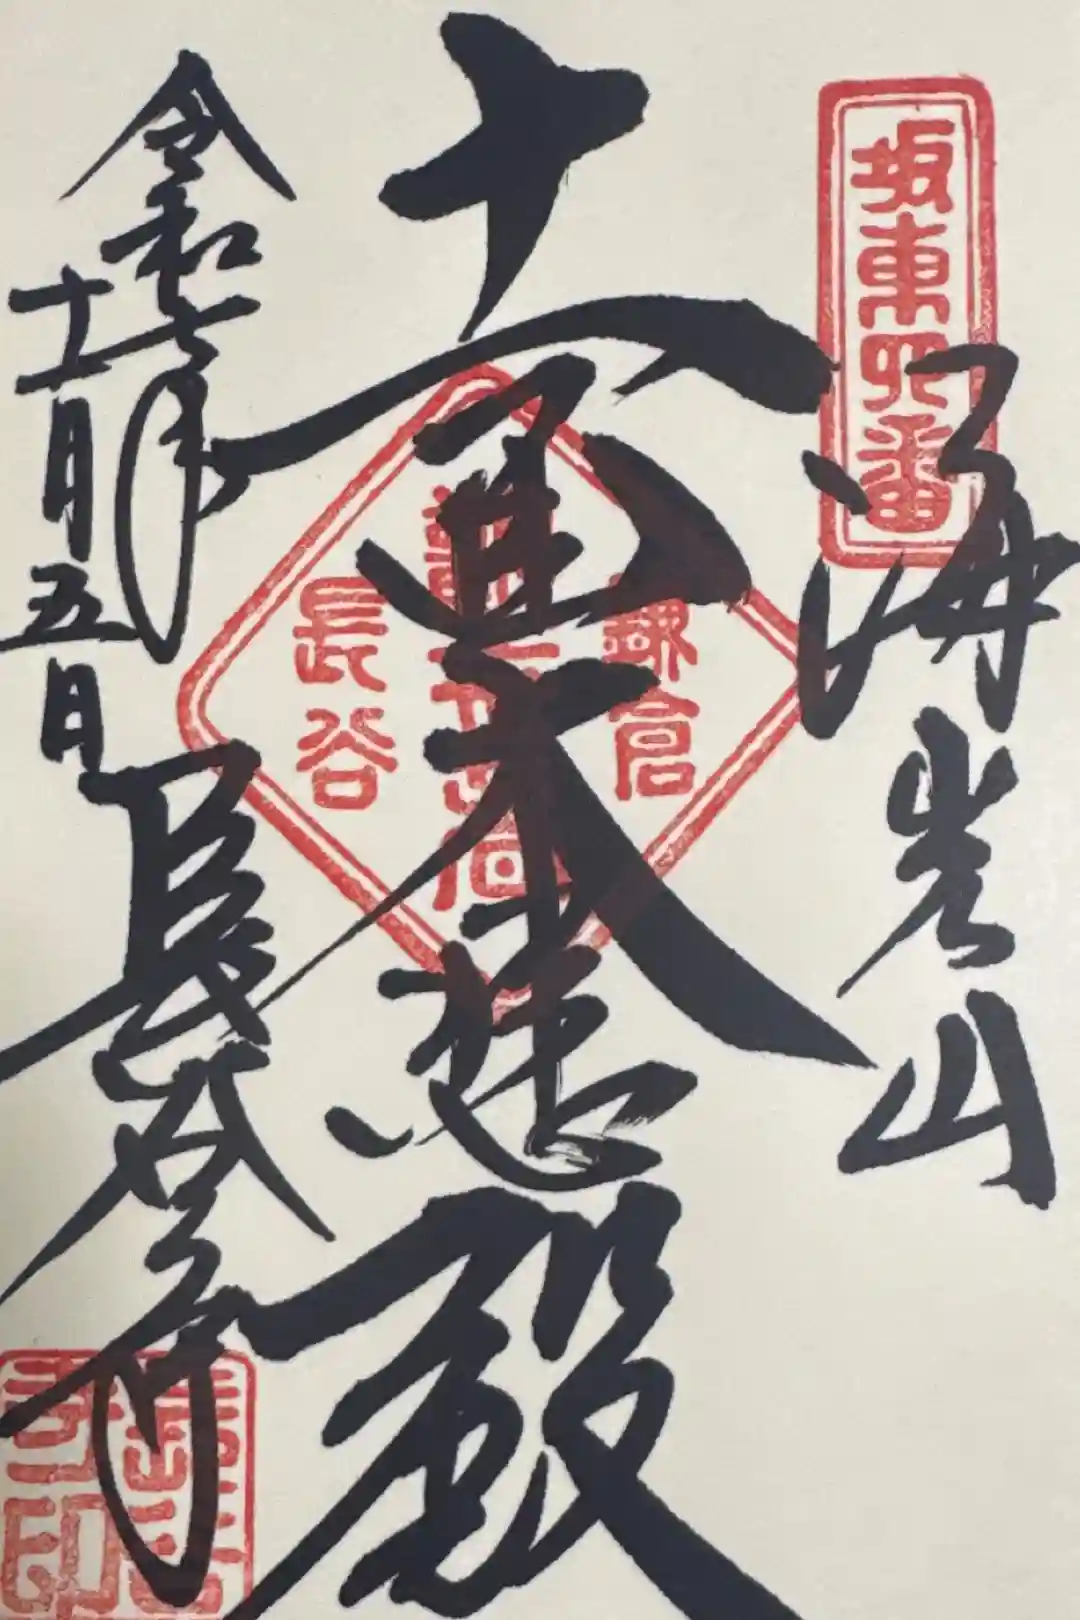 坂東四番
海光山
十一面大悲殿
鎌倉
長谷
令和七年
十一月五日
長谷寺